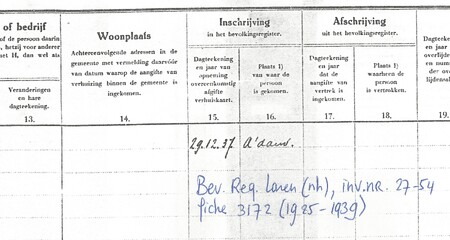 of bedrijf
of de persoon dearin
e, hetzij voor anderer
met H, dan wel als
Veranderingen
en hare
dagteekening.
13.
Woonplaats
Achtereenvolgende adressen in de
gemeente met vermelding daarvóór
van datum waarop de aangifte van
verhuizing binnen de gemeente is
ingekomen.
14.
Inschrijving
in het bevolkingsregister.
Dagteekening
en jaar van
opneming
overeenkomstig
afgifte
verhuiskaart.
15.
Plaats 1)
van waar de
persoon
is gekomen.
16.
Afschrijving
uit het bevolkingsregister.
Dagteekening
en jaar
dat de
aangifte van
vertrek is
ingekomen.
17.
Plaats 1)
waarheen de
persoon
is vertrokken.
18.
Dagteekening
en jaar
overlijden
en numm
der over
lijdensak
19.
29.12.37. A'dam.
Bev. Reg. Laren (nh), inv.nr. 27-54
fiche 3172 (1925-1939)